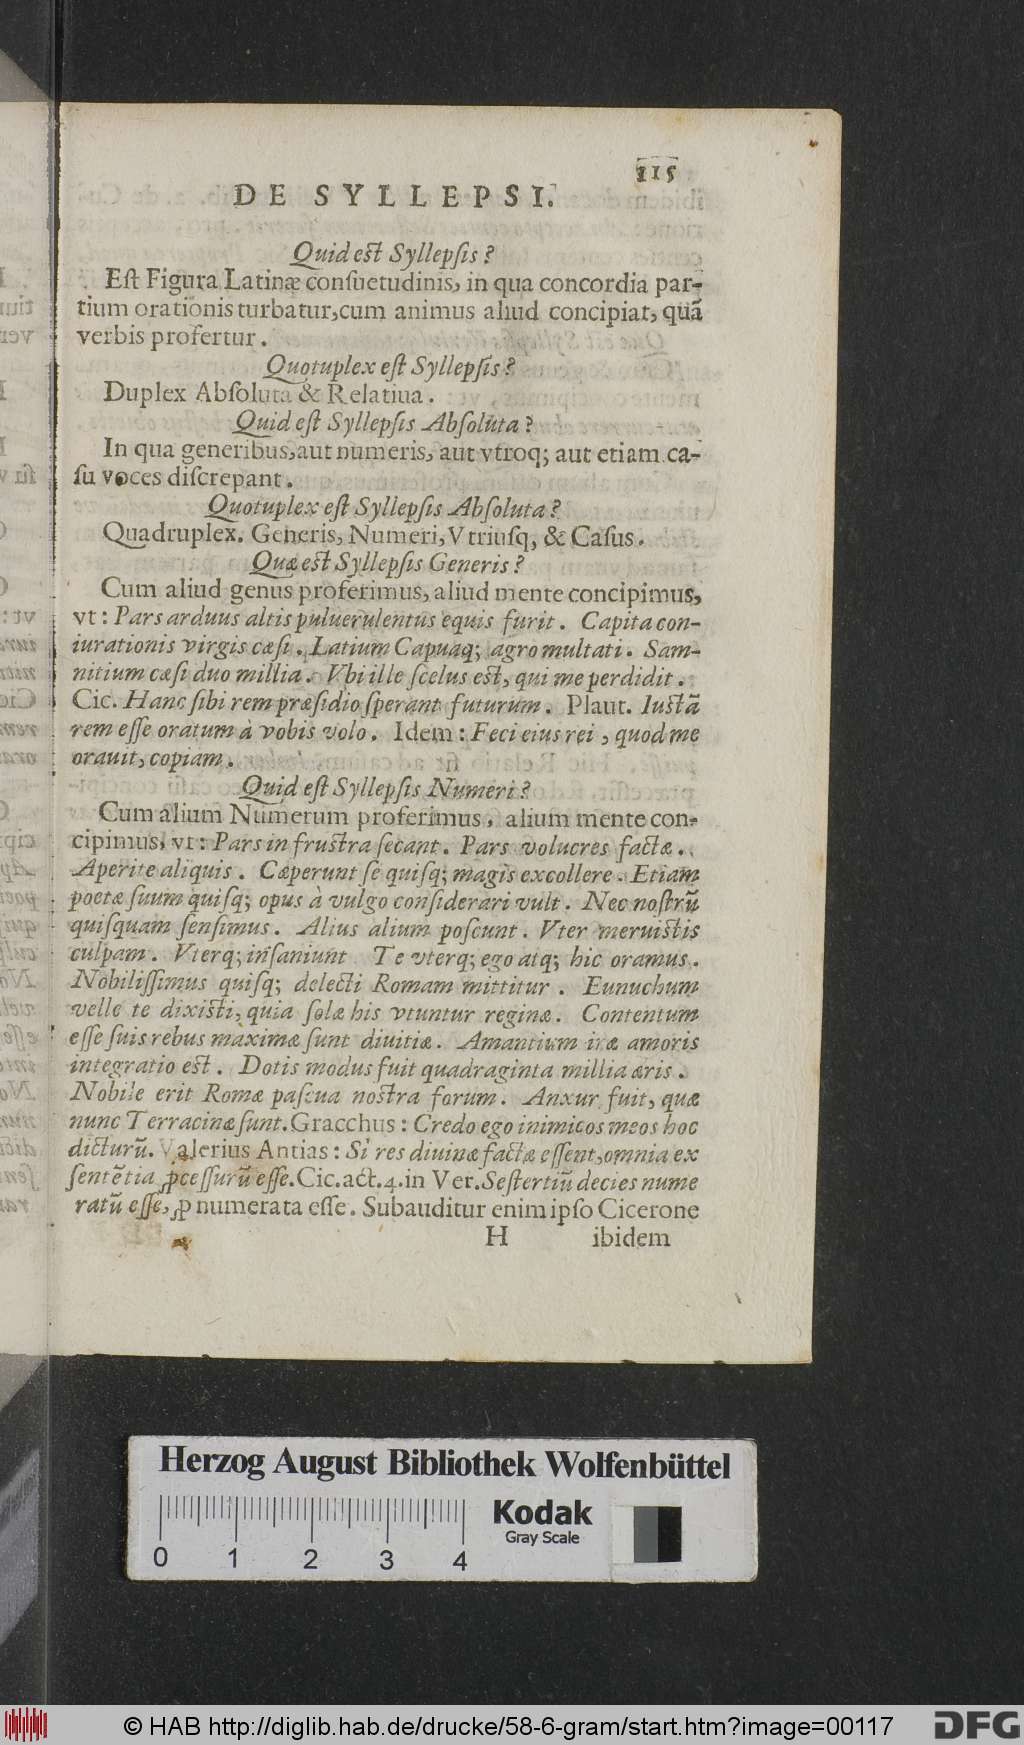 115
DE SYLLEPSI.
Quid est Syllepſis?
Eſt Figura Latinæ conſuetudinis, in qua concordia par-
tium orationis turbatur, cum animus aliud concipiat, quã
verbis profertur.
Quotuplex eſt Syllepſis?
Duplex Abſoluta & Relatiua.
Quid eſt Syllepſis Abſoluta?
In qua generibus, aut numeris, aut vtroq; aut etiam ca-
ſu voces diſcrepant.
Quotuplex eſt Syllepſis Abſoluta?
Quadruplex. Generis, Numeri, Vtriuſq, & Caſus.
Quæ est Syllepſis Generis?
Cum aliud genus proferimus, aliud mente concipimus,
vt: Pars arduus altis puluerulentus equis furit. Capita con-
iurationis virgis cæſi. Latium Capuaq; agro multati. Sam-
nitium cæſi duo millia. Vbi ille ſcelus est, qui me perdidit.
Cic. Hanc ſibi rem præſidio ſperant futurum. Plaut. Iustã
rem eſſe oratum à vobis volo. Idem: Feci eius rei, quod me
orauit, copiam.
Quid eſt Syllepſis Numeri?
Cum alium Numerum proferimus, alium mente con-
cipimus, vt: Pars in frustra ſecant. Pars volucres factæ.
Aperite aliquis. Cæperunt ſe quiſq; magis excollere. Etiam
poetæ ſuum quiſq; opus à vulgo conſiderari vult. Nec noſtrũ
quiſquam ſenſimus. Alius alium poſcunt. Vter meruistis
culpam. Vterq; inſaniunt Te vterq; ego atq; hic oramus.
Nobiliſſimus quiſq; delecti Romam mittitur. Eunuchum
velle te dixisti, quia ſolæ his vtuntur reginæ. Contentum
eſſe ſuis rebus maximæ ſunt diuitiæ. Amantium iræ amoris
integratio est. Dotis modus fuit quadraginta millia æris.
Nobile erit Romæ paſcua nostra forum. Anxur fuit, quæ
nunc Terracinæ ſunt. Gracchus: Credo ego inimicos meos hoc
dicturũ. Valerius Antias: Si res diuinæ factæ eſſent, omnia ex
ſentẽtia ꝓceſſurũ eſſe. Cic. act. 4. in Ver. Seſtertiũ decies nume
ratũ eſſe, ꝓ numerata eſſe. Subauditur enim ipſo Cicerone
H ibidem
Herzog August Bibliothek Wolfenbüttel
Kodak
Gray Scale
0 1 2 3 4
© HAB http://diglib.hab.de/drucke/58-6-gram/start.htm?image=00117
DFG